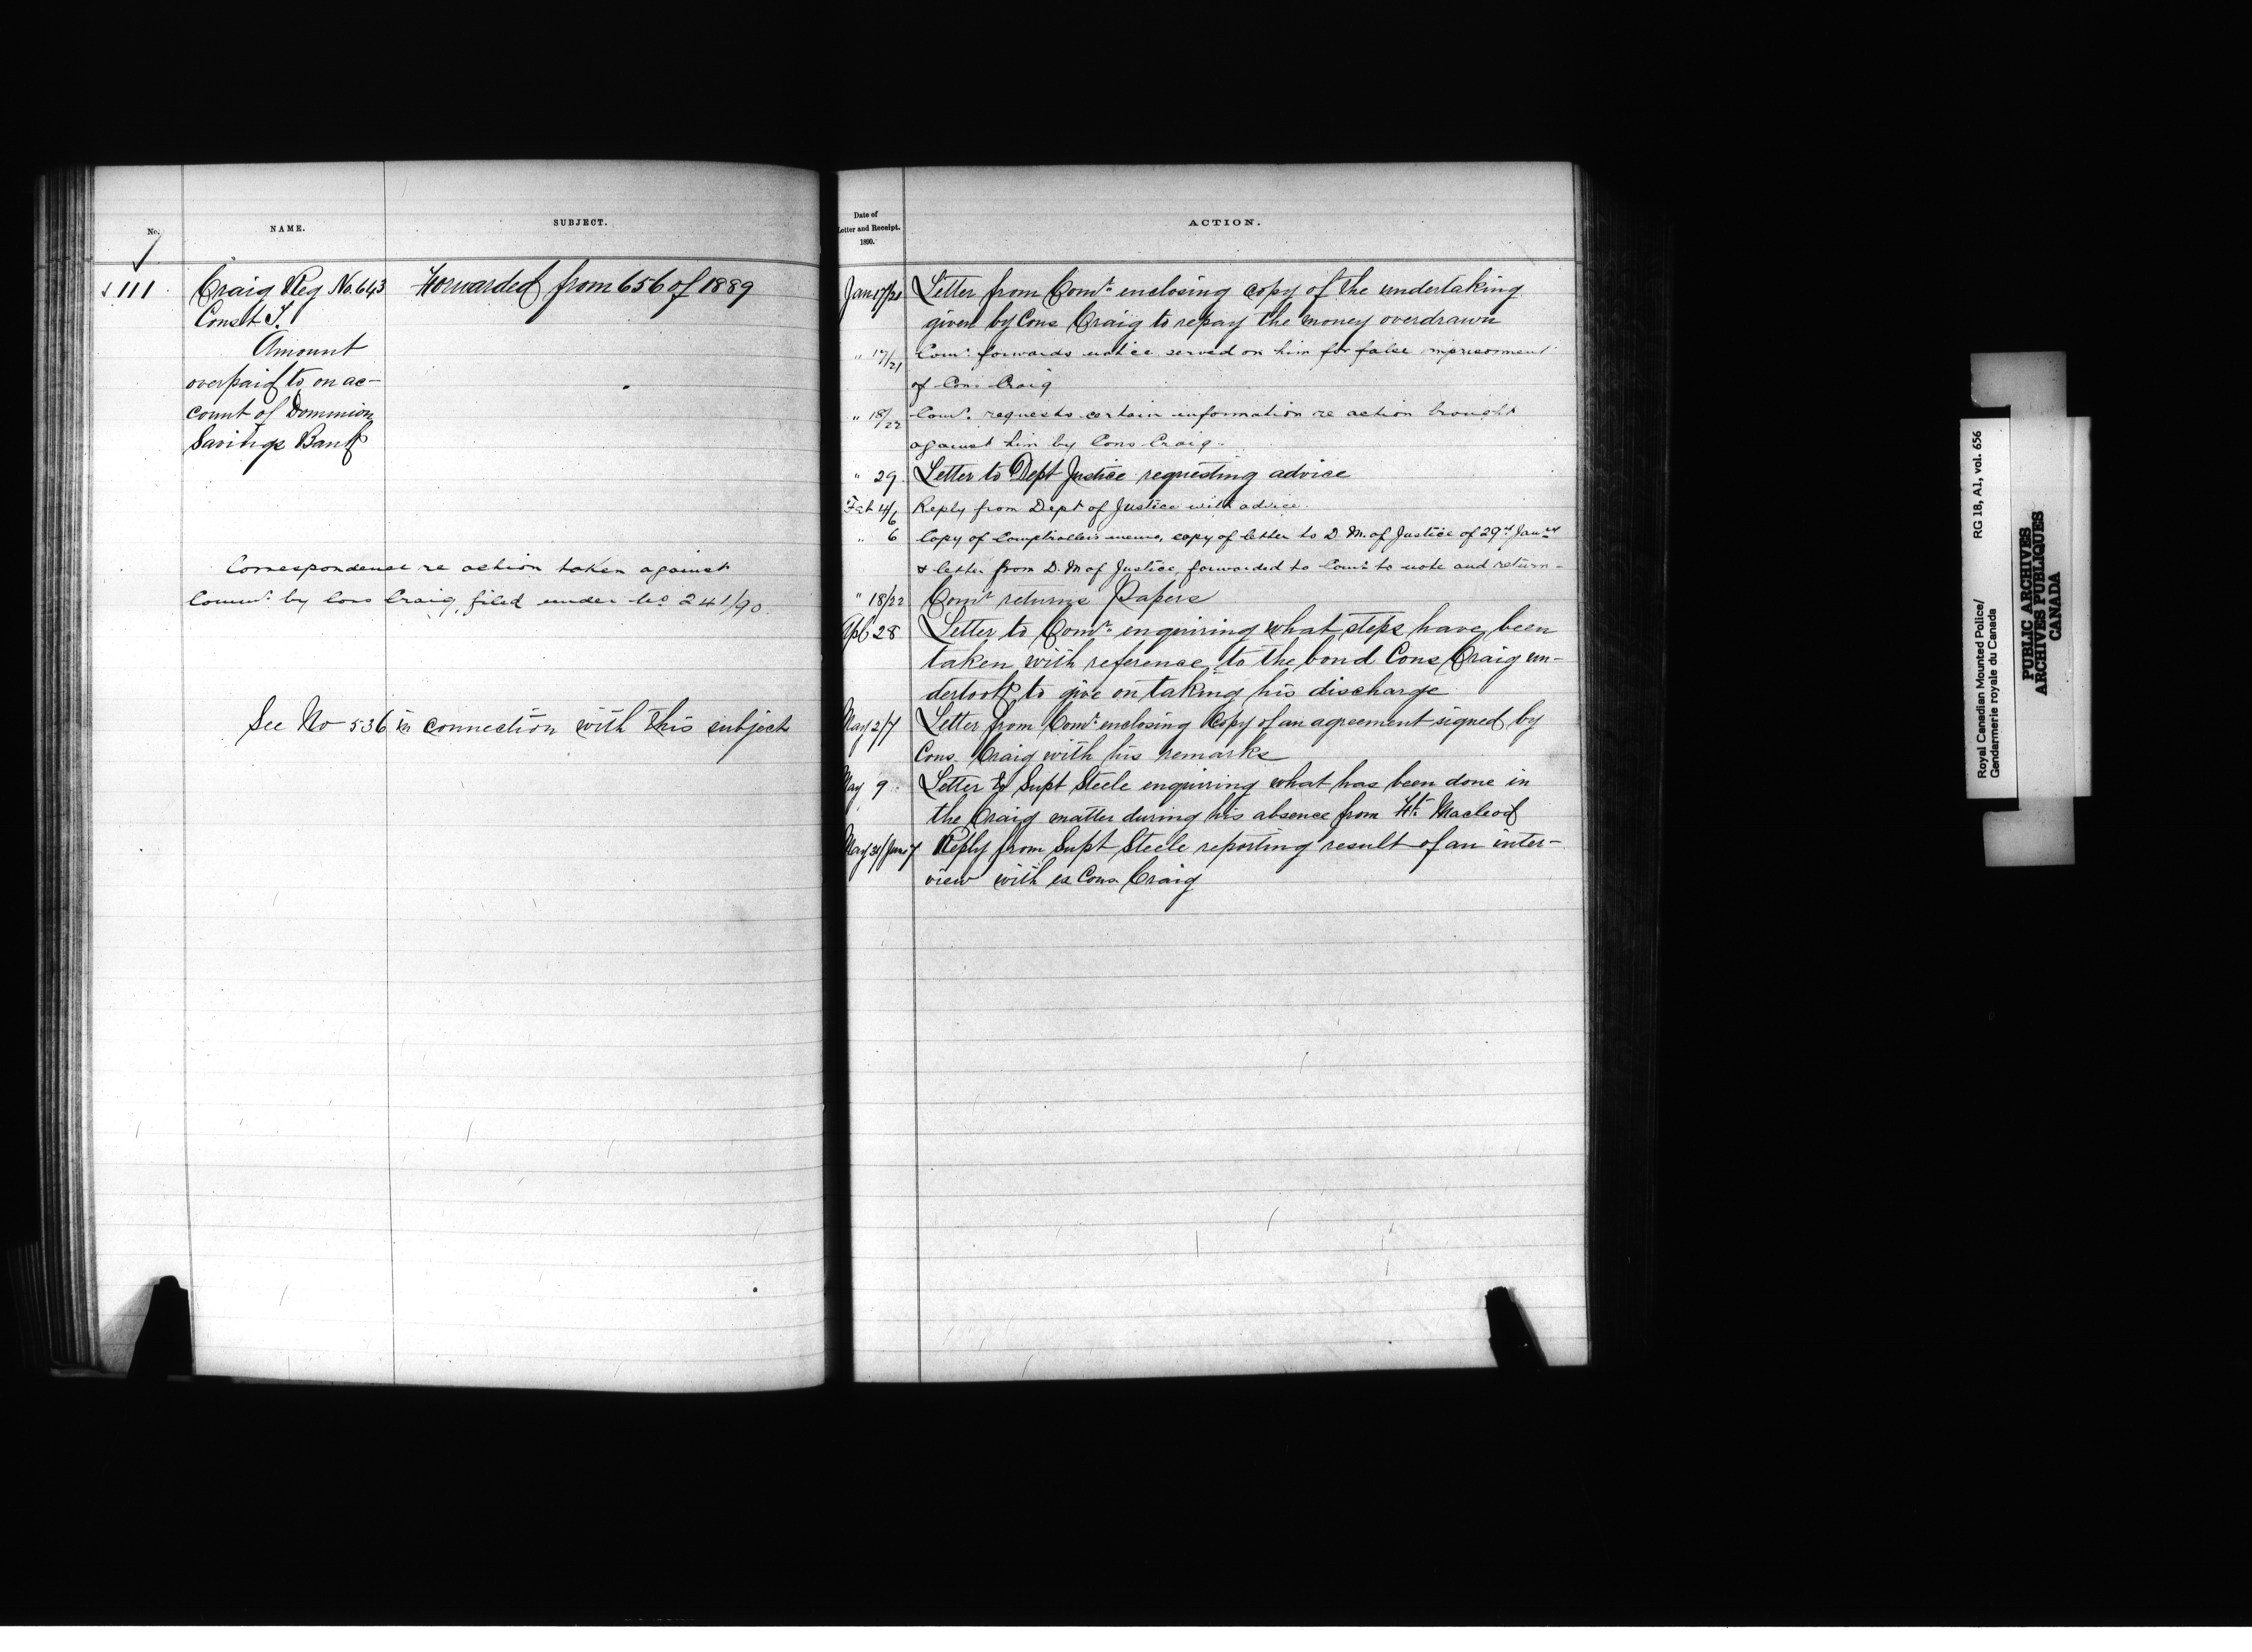 No.
NAME.
SUBJECT.
111
Craig Reg No. 643
Const J.
Amount
overpaid to on ac-
count of Dominion
Savings Bank
Forwarded from 656 of 1889
Correspondence re action taken against
Commr. by Cons Craig, filed under No 241/90.
See No 536 in connection with this subject
Date of
Letter and Receipt.
1890.
ACTION.
Jan 17/21 Letter from Comr. enclosing copy of the undertaking
given by Cons Craig to repay the money overdrawn
" 17/21 Comr. forwards notice served on him for false imprisonment
of Cons Craig
" 18/22 Comr. requests certain information re action brought
against him by Cons Craig.
" 29 Letter to Dept Justice requesting advice
Feb 4/6 Reply from Dept of Justice with advice.
" 6 Copy of Comptroller's memo, copy of letter to D. M. of Justice of 29th Jany
& letter from D. M of Justice, forwarded to Comr. to note and return -
" 18/22 Comr returns Papers
Apl 28 Letter to Comr. enquiring what steps have been
taken with reference to the bond Cons Craig un-
dertook to give on taking his discharge
May 2/7 Letter from Comr. enclosing Copy of an agreement signed by
Cons. Craig with his remarks
May 9 Letter to Supt Steele enquiring what has been done in
the Craig matter during his absence from Ft. Macleod
May 31/June 7 Reply from Supt Steele reporting result of an inter-
view with ex Cons Craig
Royal Canadian Mounted Police/
Gendarmerie royale du Canada
RG 18, A1, vol. 656
PUBLIC ARCHIVES
ARCHIVES PUBLIQUES
CANADA